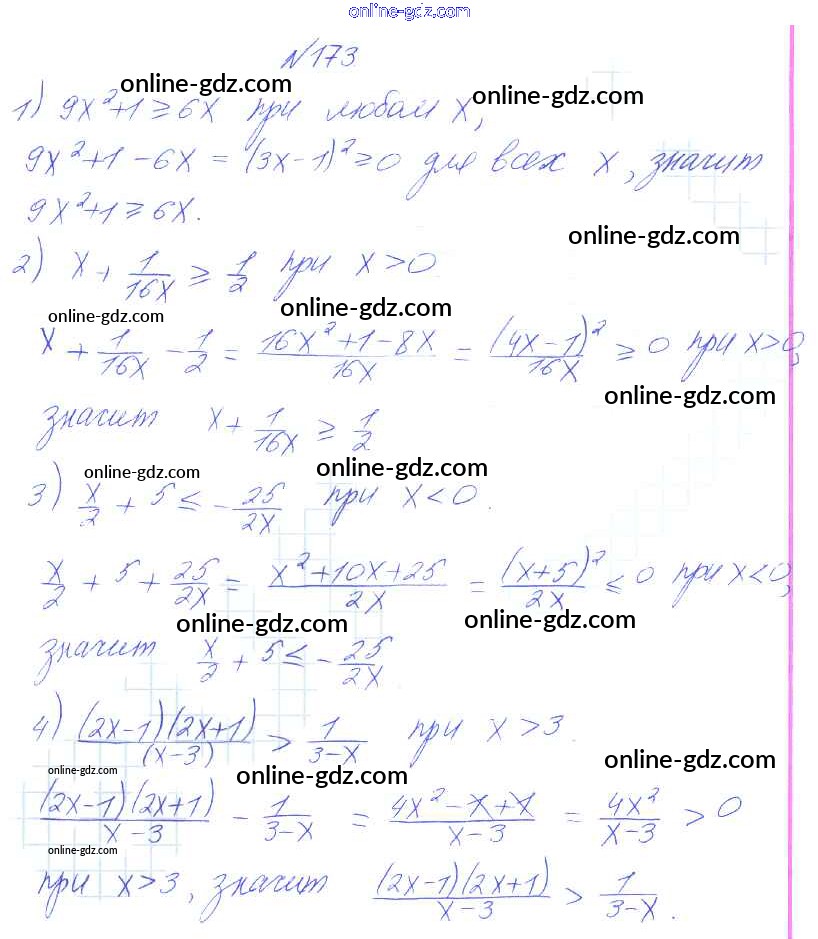 online-gdz.com
№173
1) 9x²+1 ≥ 6x при любом x,
online-gdz.com
online-gdz.com
9x²+1-6x = (3x-1)² ≥ 0 для всех x, значит
9x²+1 ≥ 6x.
online-gdz.com
2) x + 1/16x ≥ 1/2 при x > 0
online-gdz.com
online-gdz.com
x + 1/16x - 1/2 = 16x²+1-8x/16x = (4x-1)²/16x ≥ 0 при x>0,
online-gdz.com
значит x + 1/16x ≥ 1/2
online-gdz.com
online-gdz.com
3) x/2 + 5 ≤ -25/2x при x < 0.
x/2 + 5 + 25/2x = x²+10x+25/2x = (x+5)²/2x ≤ 0 при x<0,
online-gdz.com
online-gdz.com
значит x/2 + 5 ≤ -25/2x
4) (2x-1)(2x+1)/(x-3) > 1/3-x при x > 3
online-gdz.com
online-gdz.com
online-gdz.com
(2x-1)(2x+1)/x-3 - 1/3-x = 4x²-1+1/x-3 = 4x²/x-3 > 0
online-gdz.com
при x>3, значит (2x-1)(2x+1)/x-3 > 1/3-x.